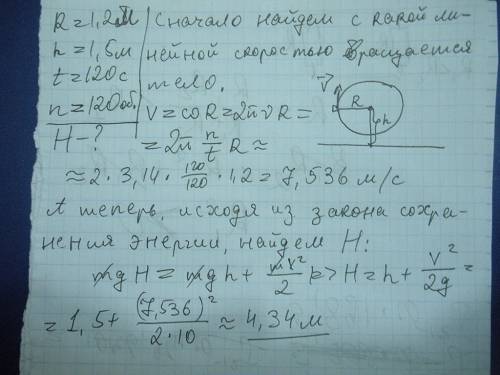 R=1,2м
h=1,5м
t=120с
n=120об.
H-?
Сначало найдем с какой ли-
нейной скоростью вращается
тело.
V=ωR=2πνR=
=2π n/t R≈
≈2·3,14·120/120·1,2=7,536 м/с
V⃗
R
h
А теперь, исходя из закона сохра-
нения энергии, найдем H:
mgH=mgh+mv²/2 => H=h+V²/2g=
=1,5+(7,536)²/2·10≈4,34м